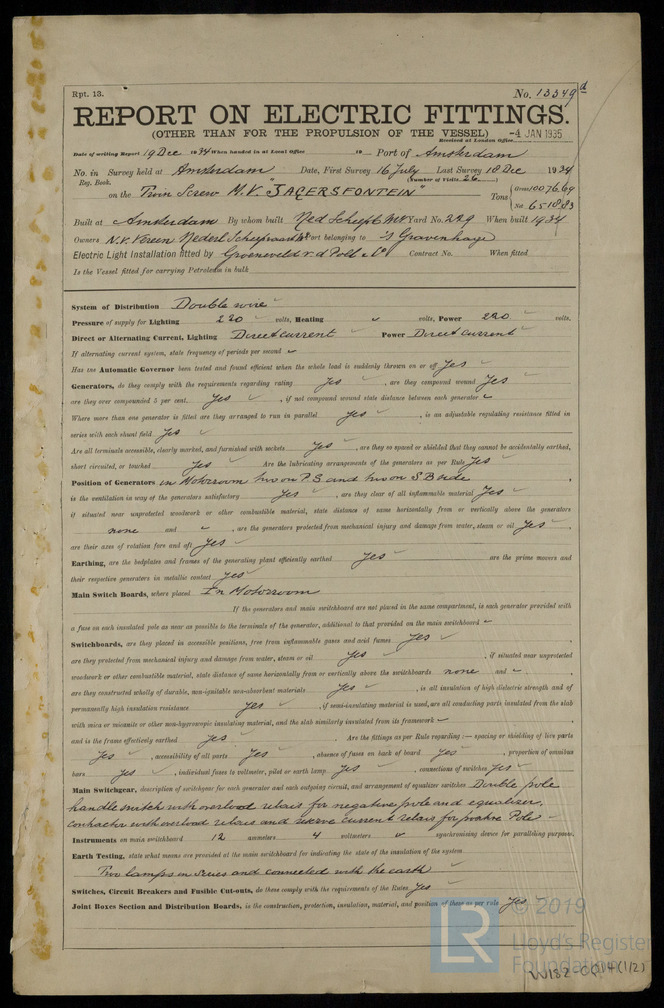 Rpt. 13.
No. 13349d
REPORT ON ELECTRIC FITTINGS.
(OTHER THAN FOR THE PROPULSION OF THE VESSEL)
Received at London Office -4 JAN 1935
Date of writing Report 19 Dec 1934 When handed in at Local Office 19 Port of Amsterdam
No. in Survey held at Amsterdam Date, First Survey 16 July Last Survey 18 Dec 1934
Reg. Book. (Number of Visits 26)
on the Twin Screw M.V. "JAGERSFONTEIN" Tons { Gross 10076.69
Net 6518.83
Built at Amsterdam By whom built Ned Scheepb Mij Yard No. 229 When built 1934
Owners N.V. Vereen Nederl Scheepvaart Mij Port belonging to 's Gravenhage
Electric Light Installation fitted by Groeneveld v. d Poll & Co Contract No. When fitted
Is the Vessel fitted for carrying Petroleum in bulk
System of Distribution Double wire
Pressure of supply for Lighting 220 volts, Heating volts, Power 220 volts.
Direct or Alternating Current, Lighting Direct current Power Direct current
If alternating current system, state frequency of periods per second
Has the Automatic Governor been tested and found efficient when the whole load is suddenly thrown on or off Yes
Generators, do they comply with the requirements regarding rating Yes , are they compound wound Yes
are they over compounded 5 per cent. Yes , if not compound wound state distance between each generator
Where more than one generator is fitted are they arranged to run in parallel Yes , is an adjustable regulating resistance fitted in
series with each shunt field Yes
Are all terminals accessible, clearly marked, and furnished with sockets Yes , are they so spaced or shielded that they cannot be accidentally earthed,
short circuited, or touched Yes Are the lubricating arrangements of the generators as per Rule Yes
Position of Generators in Motorroom two on P.S and two on S.B side ,
is the ventilation in way of the generators satisfactory Yes , are they clear of all inflammable material Yes
if situated near unprotected woodwork or other combustible material, state distance of same horizontally from or vertically above the generators
none and , are the generators protected from mechanical injury and damage from water, steam or oil Yes ,
are their axes of rotation fore and aft Yes
Earthing, are the bedplates and frames of the generating plant efficiently earthed Yes are the prime movers and
their respective generators in metallic contact Yes
Main Switch Boards, where placed In Motorroom
If the generators and main switchboard are not placed in the same compartment, is each generator provided with
a fuse on each insulated pole as near as possible to the terminals of the generator, additional to that provided on the main switchboard
Switchboards, are they placed in accessible positions, free from inflammable gases and acid fumes Yes ,
are they protected from mechanical injury and damage from water, steam or oil Yes , if situated near unprotected
woodwork or other combustible material, state distance of same horizontally from or vertically above the switchboards none and ,
are they constructed wholly of durable, non-ignitable non-absorbent materials Yes , is all insulation of high dielectric strength and of
permanently high insulation resistance Yes , if semi-insulating material is used, are all conducting parts insulated from the slab
with mica or micanite or other non-hygroscopic insulating material, and the slab similarly insulated from its framework ,
and is the frame effectively earthed Yes . Are the fittings as per Rule regarding :— spacing or shielding of live parts
Yes , accessibility of all parts Yes , absence of fuses on back of board Yes , proportion of omnibus
bars Yes , individual fuses to voltmeter, pilot or earth lamp Yes , connections of switches Yes
Main Switchgear, description of switchgear for each generator and each outgoing circuit, and arrangement of equalizer switches Double pole
handle switch with overload relais for negative pole and equalizer,
contactor with overload relais and reverse current relais for positive Pole —
Instruments on main switchboard 12 ammeters 4 voltmeters synchronising device for paralleling purposes.
Earth Testing, state what means are provided at the main switchboard for indicating the state of the insulation of the system
Two lamps in series and connected with the earth
Switches, Circuit Breakers and Fusible Cut-outs, do these comply with the requirements of the Rules Yes
Joint Boxes Section and Distribution Boards, is the construction, protection, insulation, material, and position of these as per rule Yes
LR
© 2019
Lloyd's Register
Foundation